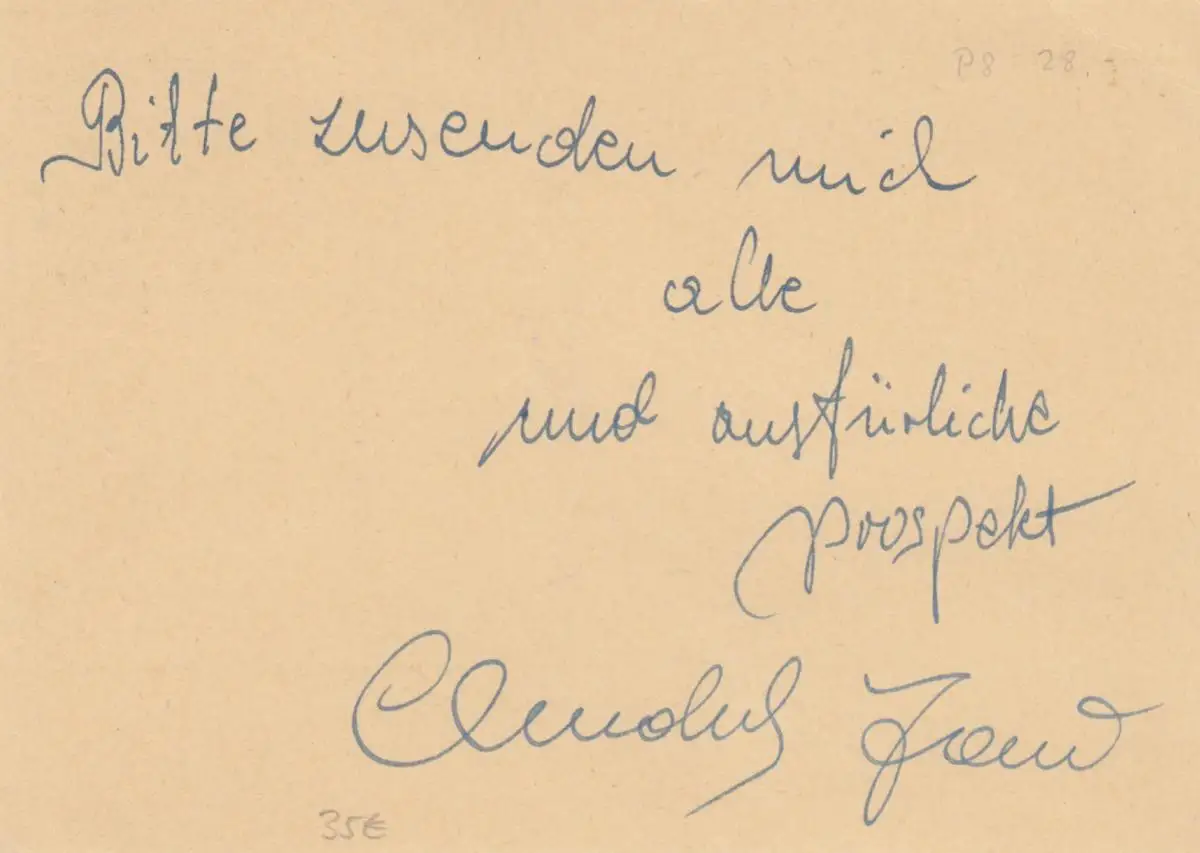 P8 28.-
Bitte zusenden mich
alle
und ausfürliche
prospekt
35€